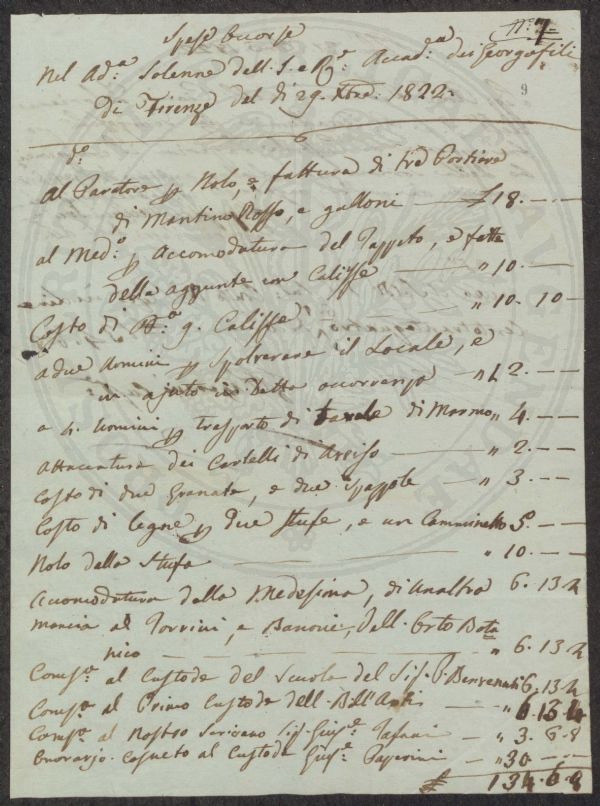 N.° 7
Spese Occorse
Nel Ad.ª Solenne dell. I. e R.ª Accad.ª dei Georgofili
9
di Firenze del dì 29. Xbre. 1822.
d.°
al Paratore p Nolo, e fattura di tre Portiere
di Mantino Rosso, e galloni £ 18. — —
al Med.° p Accomodatura del Tappeto, e fatte
delle aggiunte con Calisse " 10. —
Costo di B.ª 9. Calisse " 10. 10 —
a due uomini p Spolverare il Locale, e
in ajuto in detta occorrenza " 12. — —
a 4. uomini p trasporto di tavole di Marmo " 4. — —
attaccatura dei Cartelli di Avviso " 2. — —
Costo di due Granate, e due Spazzole " 3 — —
Costo di legne p due stufe, e un Camminetto 5. — —
Nolo della Stufa " 10. — —
Accomodatura della Medesima, di Analtra 6. 13. 4
mancia al Torrini, e Banone, dell. Orto Bota
nico " 6. 13. 4
Comp.ª al Custode del Scuola del Sig. P. Benvenuti 6. 13. 4
Comp.ª al Primo Custode dell. Bell'Arti " 6. 13. 4
Comp.ª al Nostro Scrivano Sig. Gius.e Tafani " 3. 6. 8
Onorario consueto al Custode Gius.e Paperini " 30 — —
£ 134. 6. 8